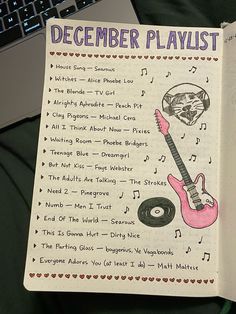 DECEMBER PLAYLIST
House Song — Searows
Witches — Alice Phoebe Lou
The Blonde — TV Girl
Alrighty Aphrodite — Peach Pit
Clay Pigeons — Michael Cera
All I Think About Now — Pixies
Waiting Room — Phoebe Bridgers
Teenage Blue — Dreamgirl
But Not Kiss — Faye Webster
The Adults Are Talking — The Strokes
Need 2 — Pinegrove
Numb — Men I Trust
End Of The World — Searows
This Is Gonna Hurt — Dirty Nice
The Parting Glass — boygenius, Ye Vagabonds
Everyone Adores You (at least I do) — Matt Maltese